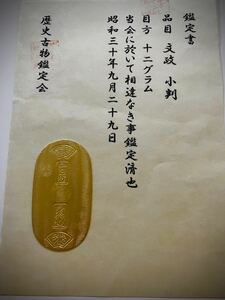 鑑定書
品目 文政 小判
目方 十二グラム
当会に於いて相違なき事鑑定済也
昭和三十年九月二十九日
歴史古物鑑定会